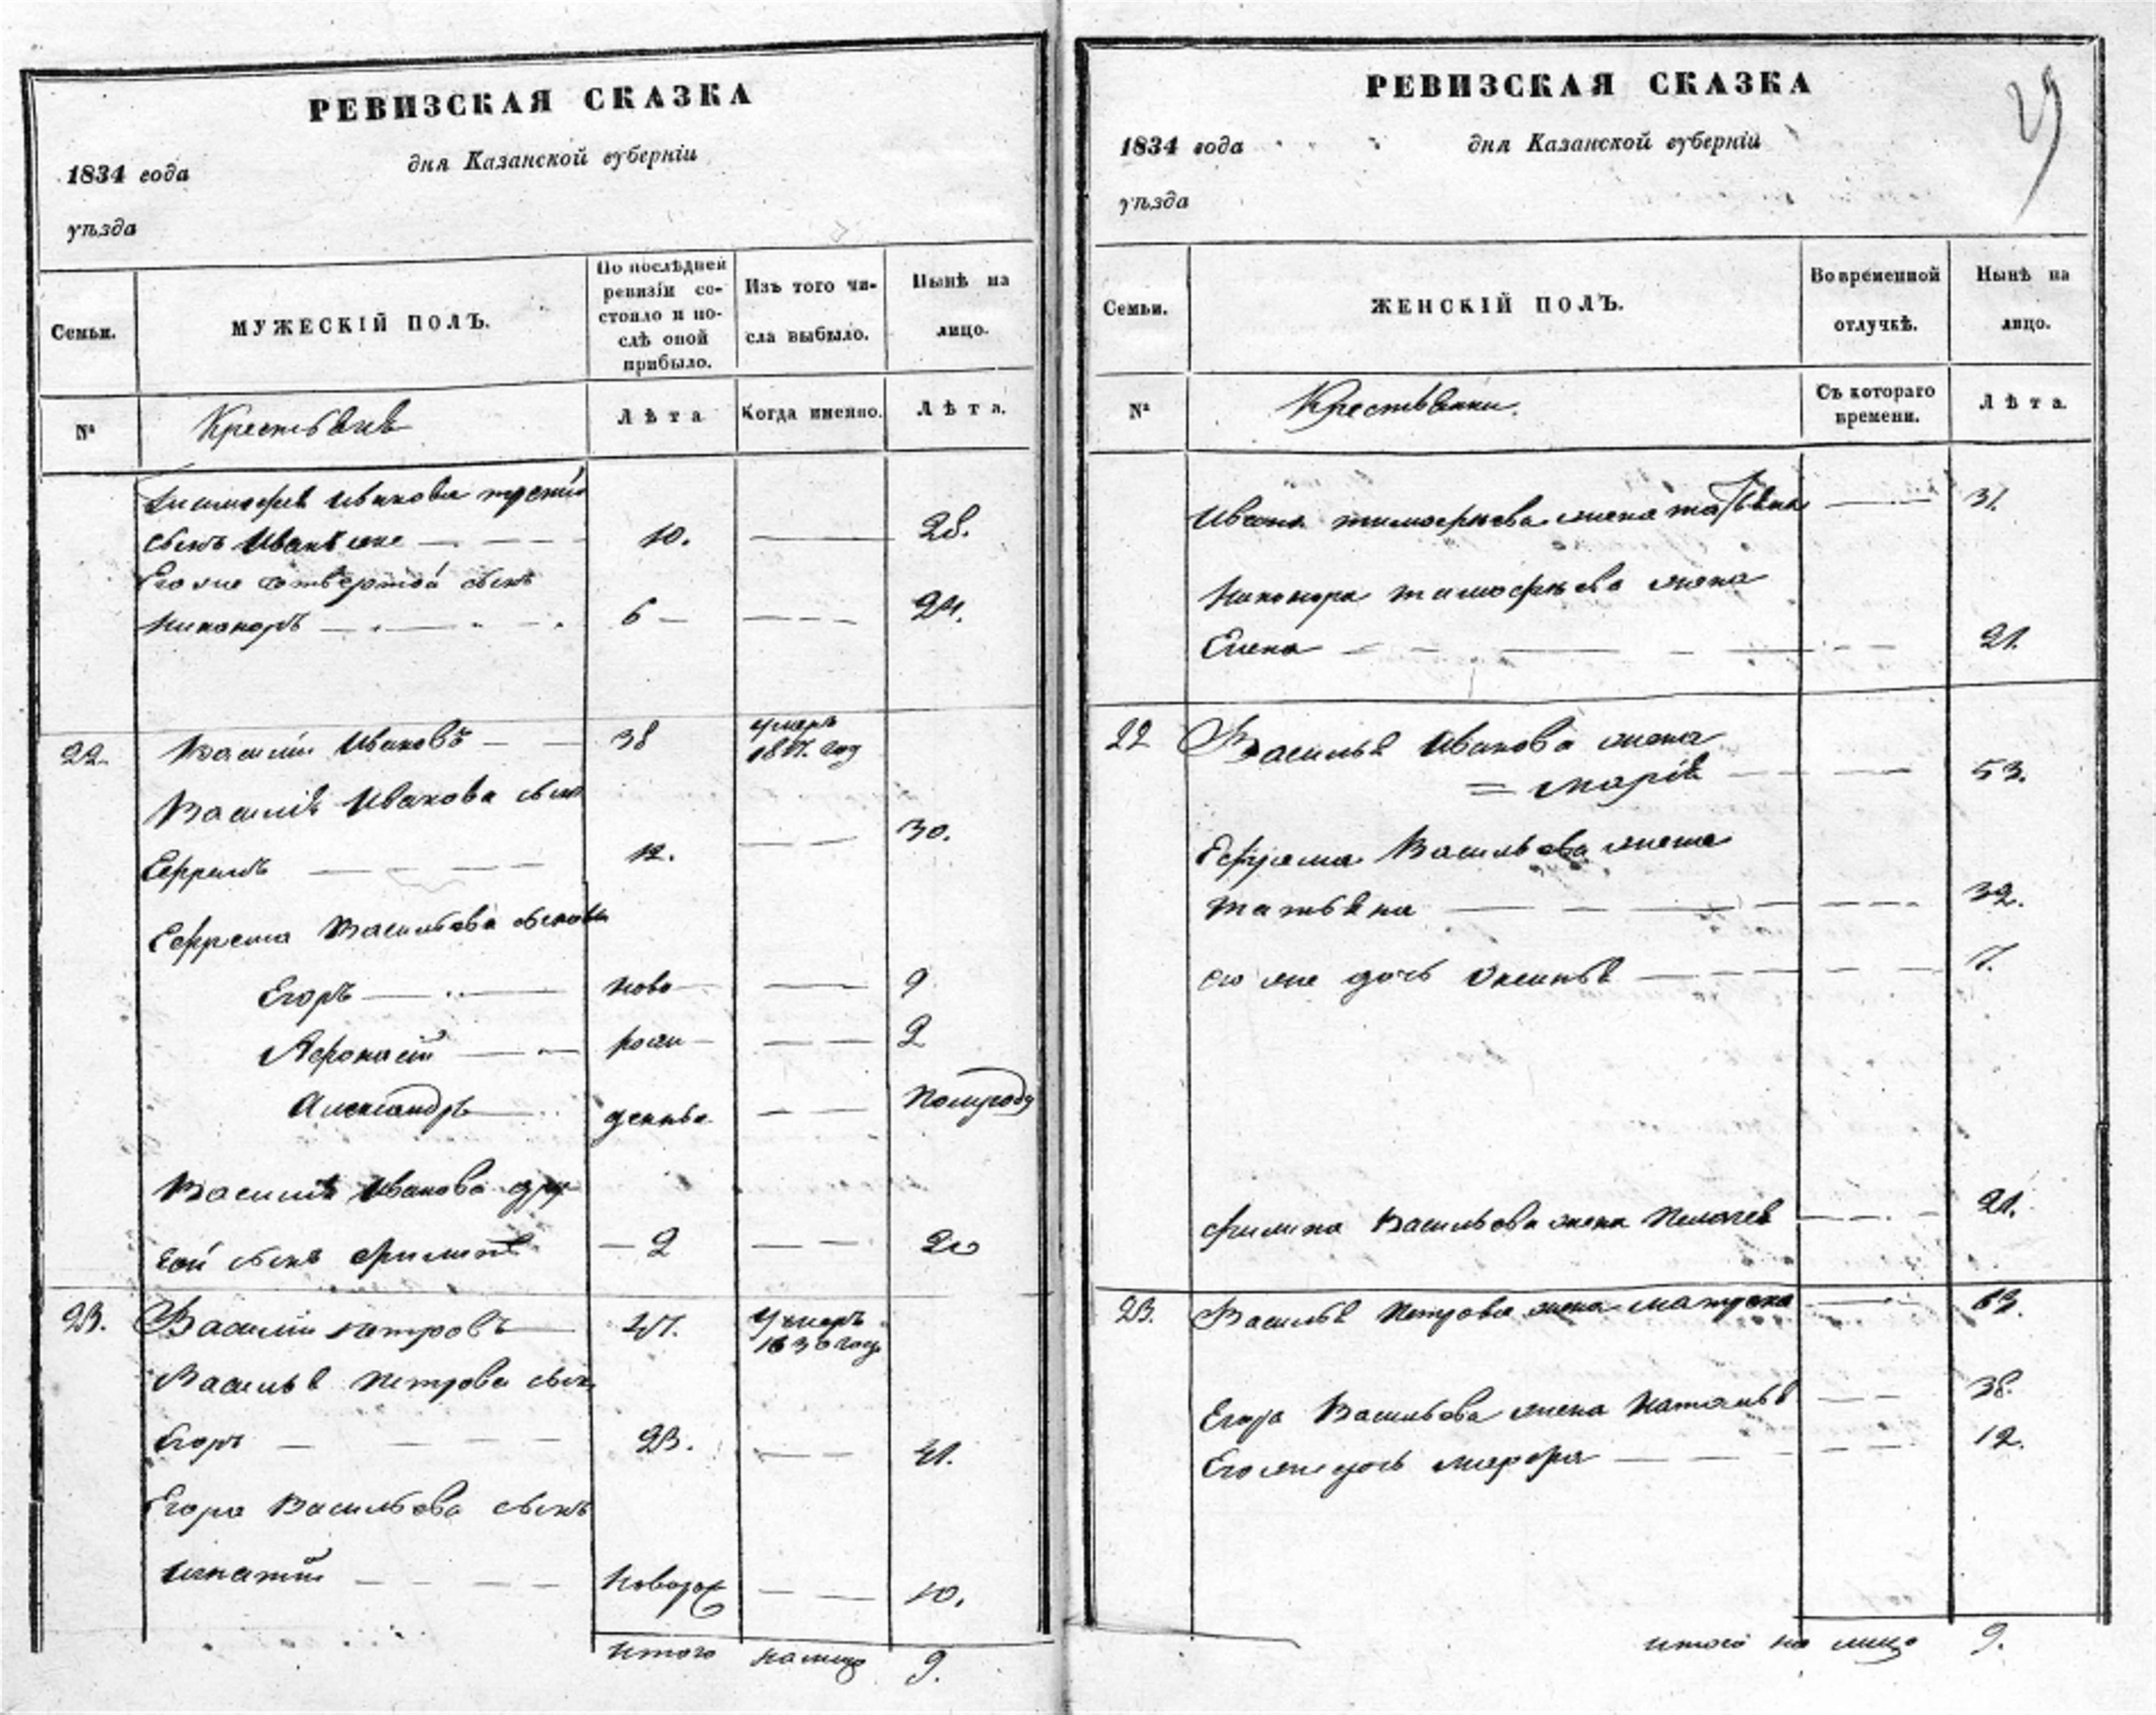 РЕВИЗСКАЯ СКАЗКА
1834 года
дня Казанской губерніи
уѣзда
Семьи.
МУЖЕСКІЙ ПОЛЪ.
По послѣдней ревизіи со-
стояло и по-
слѣ оной
прибыло.
Изъ того чи-
сла выбыло.
Нынѣ на
лицо.
№
Крестьяне
Лѣта
Когда именно.
Лѣта.
Тимофея Иванова третій
сынъ Иванъ же 10. 28.
Его же четвертой сынъ
Никоноръ 6 24.
22. Василій Ивановъ 38 умеръ
Василія Иванова сынъ
Ефремъ 12. 30.
Ефрема Васильева сыновья
Егоръ ново 9
Афонасій рож 2
Александръ деннье полугоду
Василія Иванова дру
гой сынъ Филипъ 2 20
23. Василій Петровъ 47. умеръ
1830 году
Василья Петрова сынъ
Егоръ 23. 41.
Егора Васильева сынъ
Игнатій новорож 10.
итого налицо 9.
РЕВИЗСКАЯ СКАЗКА
29
1834 года
дня Казанской губерніи
уѣзда
Семьи.
ЖЕНСКІЙ ПОЛЪ.
Во временной
отлучкѣ.
Нынѣ на
лицо.
№
Крестьянки.
Съ котораго
времени.
Лѣта.
Ивана тимофѣева жена татьяна 31
Никонора тимофѣева жена
Елена 21.
22 Василья Иванова жена
= марія 53.
Ефрема Васильева жена
татьяна 32.
его же дочь
Филипа Васильева жена Пелагея 21.
23. Василья Петрова жена матрена 63.
Егора Васильева жена Наталья 38.
Его же дочь 12.
итого на лицо 9.